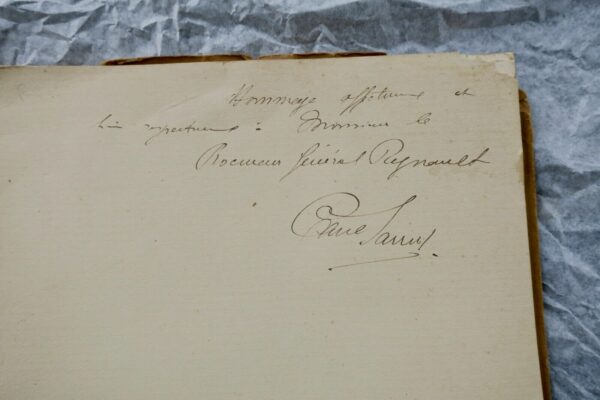 Hommage affectueux et
bien respectueux à Monsieur le
Procureur Général Regnault